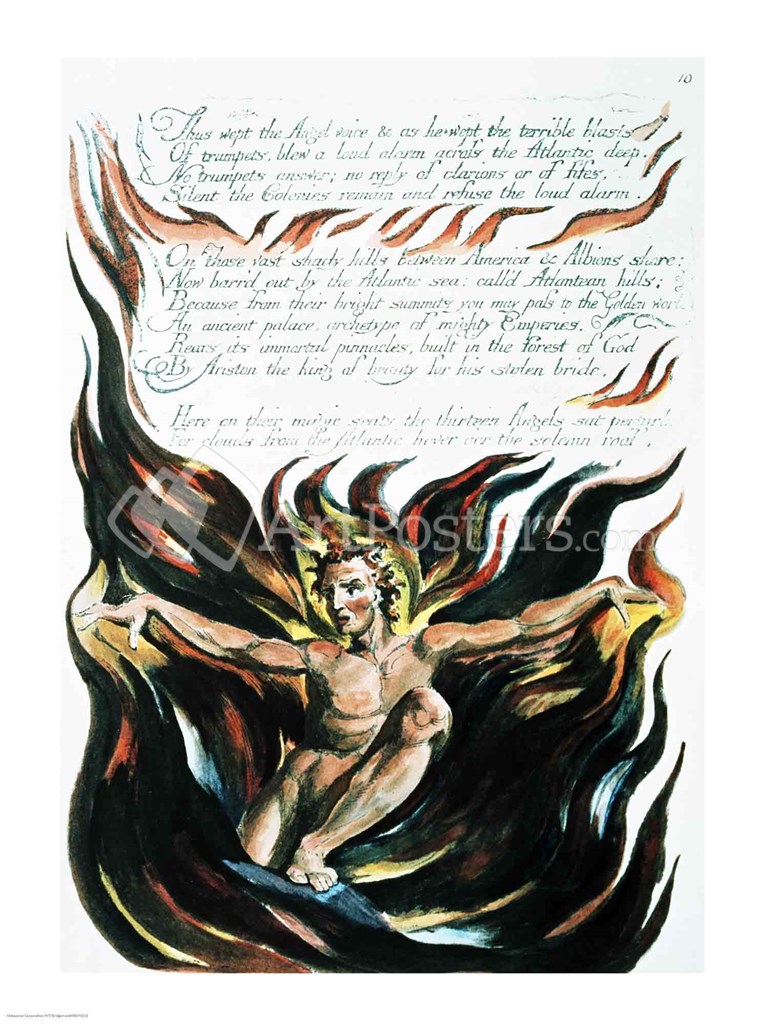 10
Thus wept the Angel voice & as he wept the terrible blasts
Of trumpets, blew a loud alarm across the Atlantic deep.
No trumpets answer; no reply of clarions or of fifes,
Silent the Colonies remain and refuse the loud alarm.
On those vast shady hills between America & Albions shore;
Now barr'd out by the Atlantic sea: call'd Atlantean hills:
Because from their bright summits you may pass to the Golden world
An ancient palace, archetype of mighty Emperies,
Rears its immortal pinnacles, built in the forest of God
By Ariston the king of beauty for his stolen bride,
Here on their magic seats the thirteen Angels sat perturb'd
For clouds from the Atlantic hover o'er the solemn roof.
ArtPosters.com